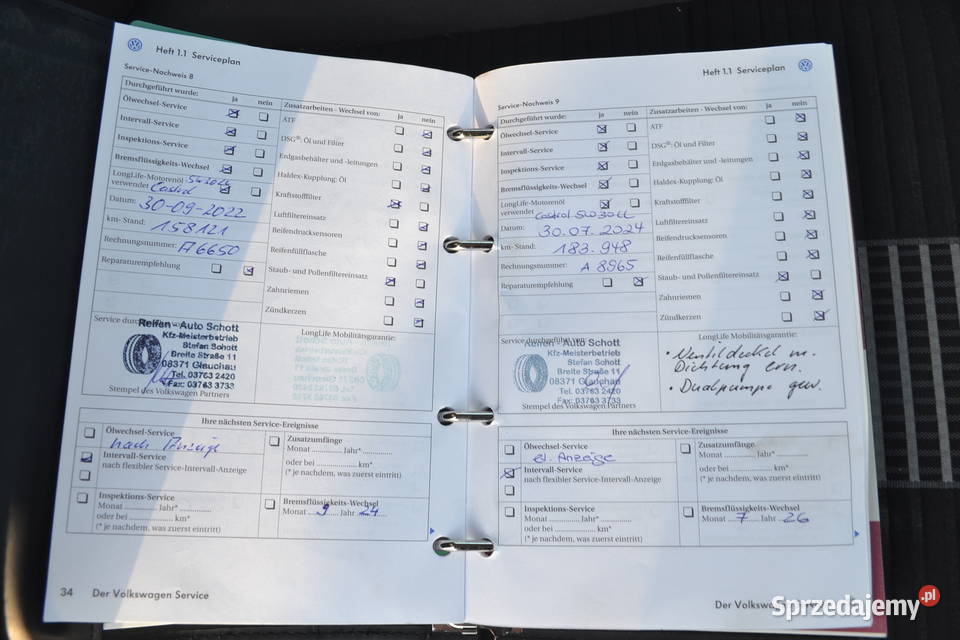 Heft 1.1 Serviceplan
Service-Nachweis 8
Durchgeführt wurde: ja nein
Ölwechsel-Service
Intervall-Service
Inspektions-Service
Bremsflüssigkeits-Wechsel
LongLife-Motorenöl 5W30LL
verwendet Castrol
Datum: 30-09-2022
km- Stand: 158121
Rechnungsnummer: A6650
Reparaturempfehlung
Zusatzarbeiten - Wechsel von: ja nein
ATF
DSG®: Öl und Filter
Erdgasbehälter und -leitungen
Haldex-Kupplung: Öl
Kraftstofffilter
Luftfiltereinsatz
Reifendrucksensoren
Reifenfüllflasche
Staub- und Pollenfiltereinsatz
Zahnriemen
Zündkerzen
Service durchgeführt
Reifen - Auto Schott
Kfz-Meisterbetrieb
Stefan Schott
Breite Straße 11
08371 Glauchau
Tel. 03763 2420
Fax: 03763 3733
Stempel des Volkswagen Partners
LongLife Mobilitätsgarantie:
Ihre nächsten Service-Ereignisse
Ölwechsel-Service
nach Anzeige
Intervall-Service
nach flexibler Service-Intervall-Anzeige
Inspektions-Service
Monat Jahr*
oder bei km*
(* je nachdem, was zuerst eintritt)
Zusatzumfänge
Monat Jahr*
oder bei km*
(* je nachdem, was zuerst eintritt)
Bremsflüssigkeits-Wechsel
Monat 9 Jahr 24
34 Der Volkswagen Service
Heft 1.1 Serviceplan
Service-Nachweis 9
Durchgeführt wurde: ja nein
Ölwechsel-Service
Intervall-Service
Inspektions-Service
Bremsflüssigkeits-Wechsel
LongLife-Motorenöl
verwendet Castrol 5W30LL
Datum: 30.07.2024
km-Stand: 183.948
Rechnungsnummer: A 8965
Reparaturempfehlung
Zusatzarbeiten - Wechsel von: ja nein
ATF
DSG®: Öl und Filter
Erdgasbehälter und -leitungen
Haldex-Kupplung: Öl
Kraftstofffilter
Luftfiltereinsatz
Reifendrucksensoren
Reifenfüllflasche
Staub- und Pollenfiltereinsatz
Zahnriemen
Zündkerzen
Service durchgeführt von:
Reifen - Auto Schott
Kfz-Meisterbetrieb
Stefan Schott
Breite Straße 11
08371 Glauchau
Tel. 03763 2420
Fax: 03763 3733
Stempel des Volkswagen Partners
LongLife Mobilitätsgarantie:
• Ventildeckel m.
Dichtung ern.
• Dualpumpe gew.
Ihre nächsten Service-Ereignisse
Ölwechsel-Service
el. Anzeige
Intervall-Service
nach flexibler Service-Intervall-Anzeige
Inspektions-Service
Monat Jahr*
oder bei km*
(* je nachdem, was zuerst eintritt)
Zusatzumfänge
Monat Jahr*
oder bei km*
(* je nachdem, was zuerst eintritt)
Bremsflüssigkeits-Wechsel
Monat 7 Jahr 26
Der Volkswagen
Sprzedajemy.pl